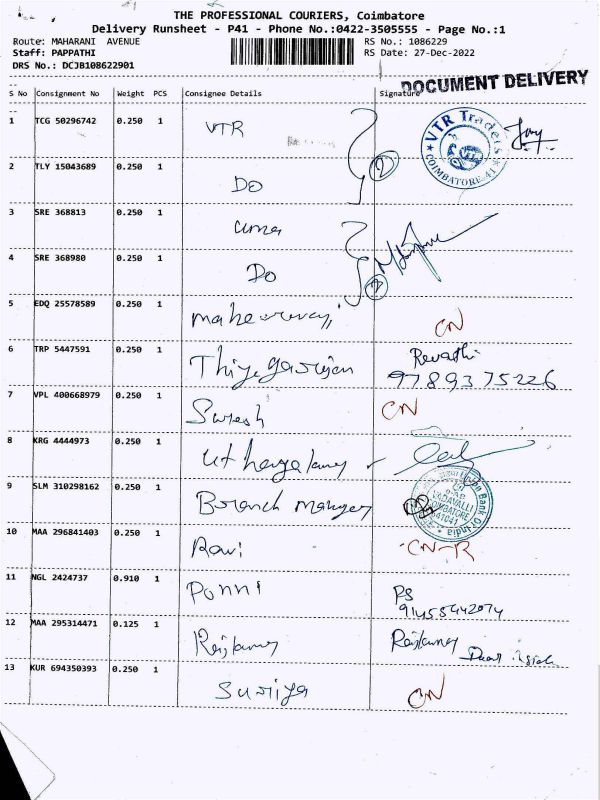 THE PROFESSIONAL COURIERS, Coimbatore
Delivery Runsheet - P41 - Phone No.:0422-3505555 - Page No.:1
Route: MAHARANI AVENUE RS No.: 1086229
Staff: PAPPATHI RS Date: 27-Dec-2022
DRS No.: DCJB108622901
DOCUMENT DELIVERY
S No Consignment No Weight PCS Consignee Details Signature
1 TCG 50296742 0.250 1 VTR VTR Traders COIMBATORE-41
2 TLY 15043689 0.250 1 DO 2
3 SRE 368813 0.250 1 uma
4 SRE 368980 0.250 1 Do
5 EDQ 25578589 0.250 1 CN
6 TRP 5447591 0.250 1 Thiyagarajan Revathi
9789375226
7 VPL 400668979 0.250 1 Suresh CN
8 KRG 4444973 0.250 1
9 SLM 310298162 0.250 1 Branch Manager Bank Of India VADAVALLI COIMBATORE 641041
10 MAA 296841403 0.250 1 Ravi CN-R
11 NGL 2424737 0.910 1 Ponni PS
9145542074
12 MAA 295314471 0.125 1 Rajkumar Rajkumar
13 KUR 694350393 0.250 1 Suriya CN